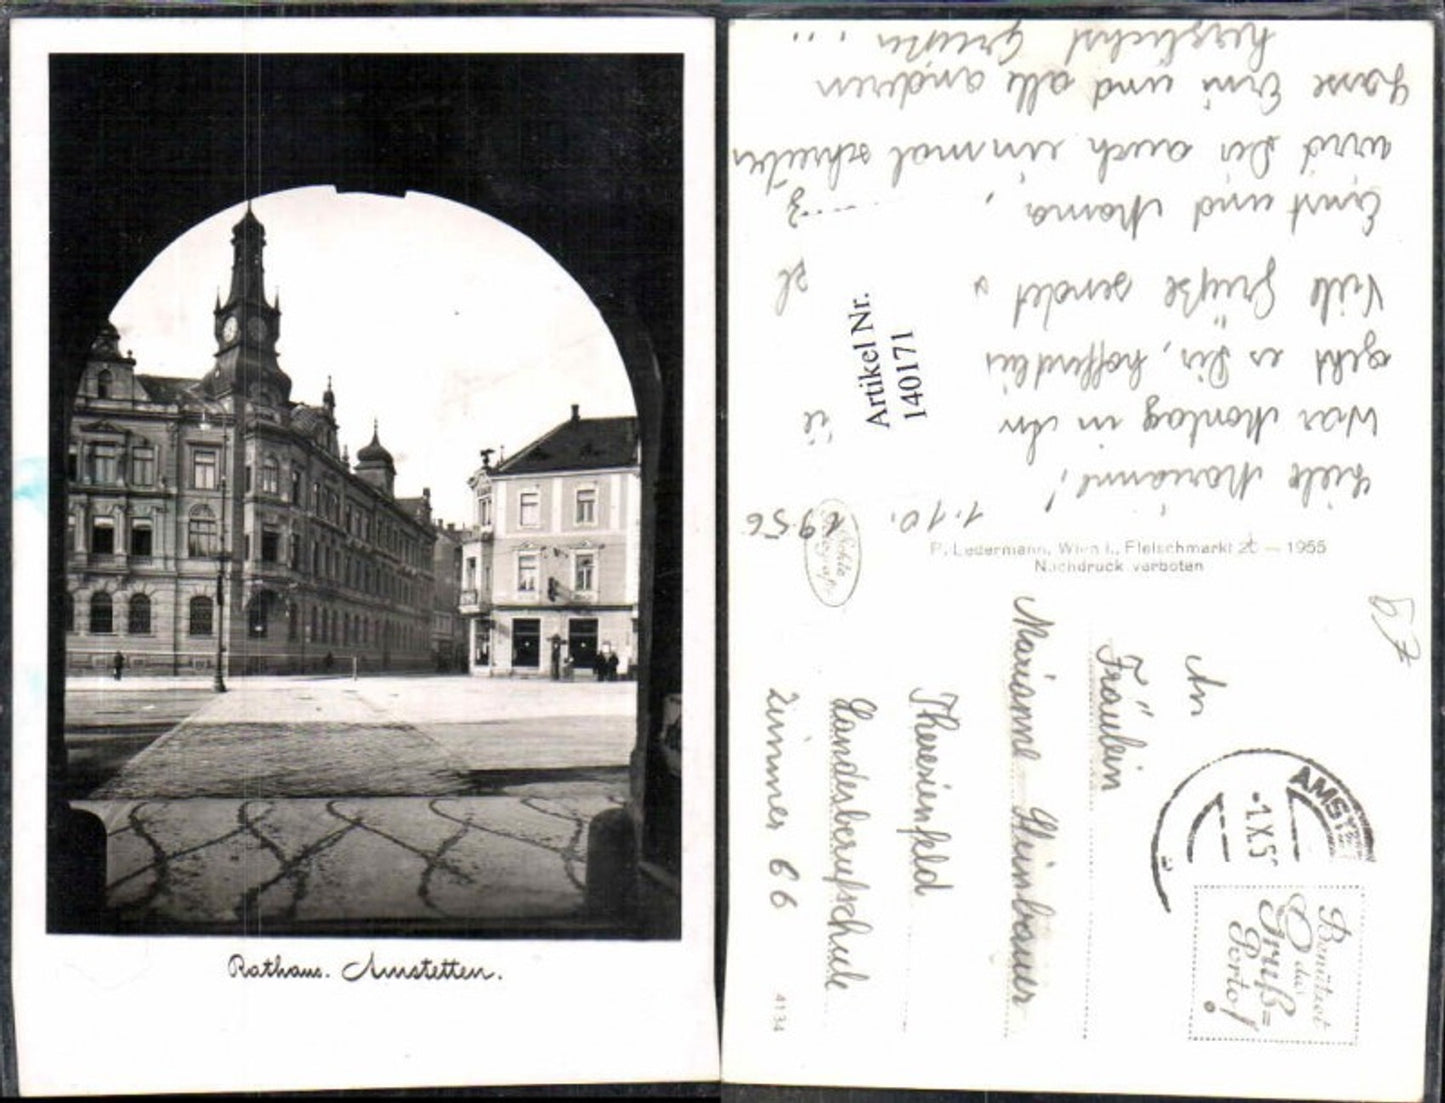 Rathaus. Amstetten.
1.10. 1956
Liebe Marianne!
War Montag in
geht es Dir, hoffentlich
Viele Grüße sendet
Ernst und Mama,
wird Dir auch einmal schreiben
lasse Erni und alle anderen
herzlichst Grüßen ...
Artikel Nr.
140171
P. Ledermann, Wien I., Fleischmarkt 20 — 1955
Nachdruck verboten
An
Fräulein
Marianne
Theresienfeld
Landesberufschule
Zimmer 66
4134
AMST
-1.X.5
Benützet
das
Gruß=
Porto!